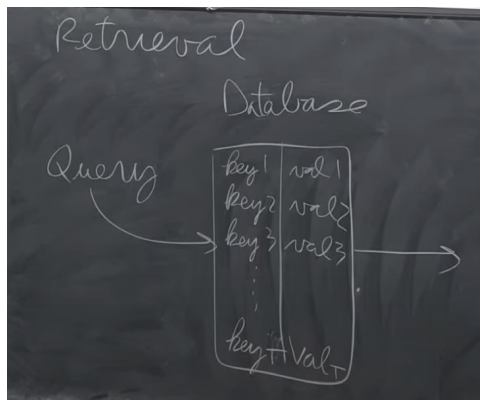 Retrieval
Database
Query
key1 val1
key2 val2
key3 val3
keyT ValT